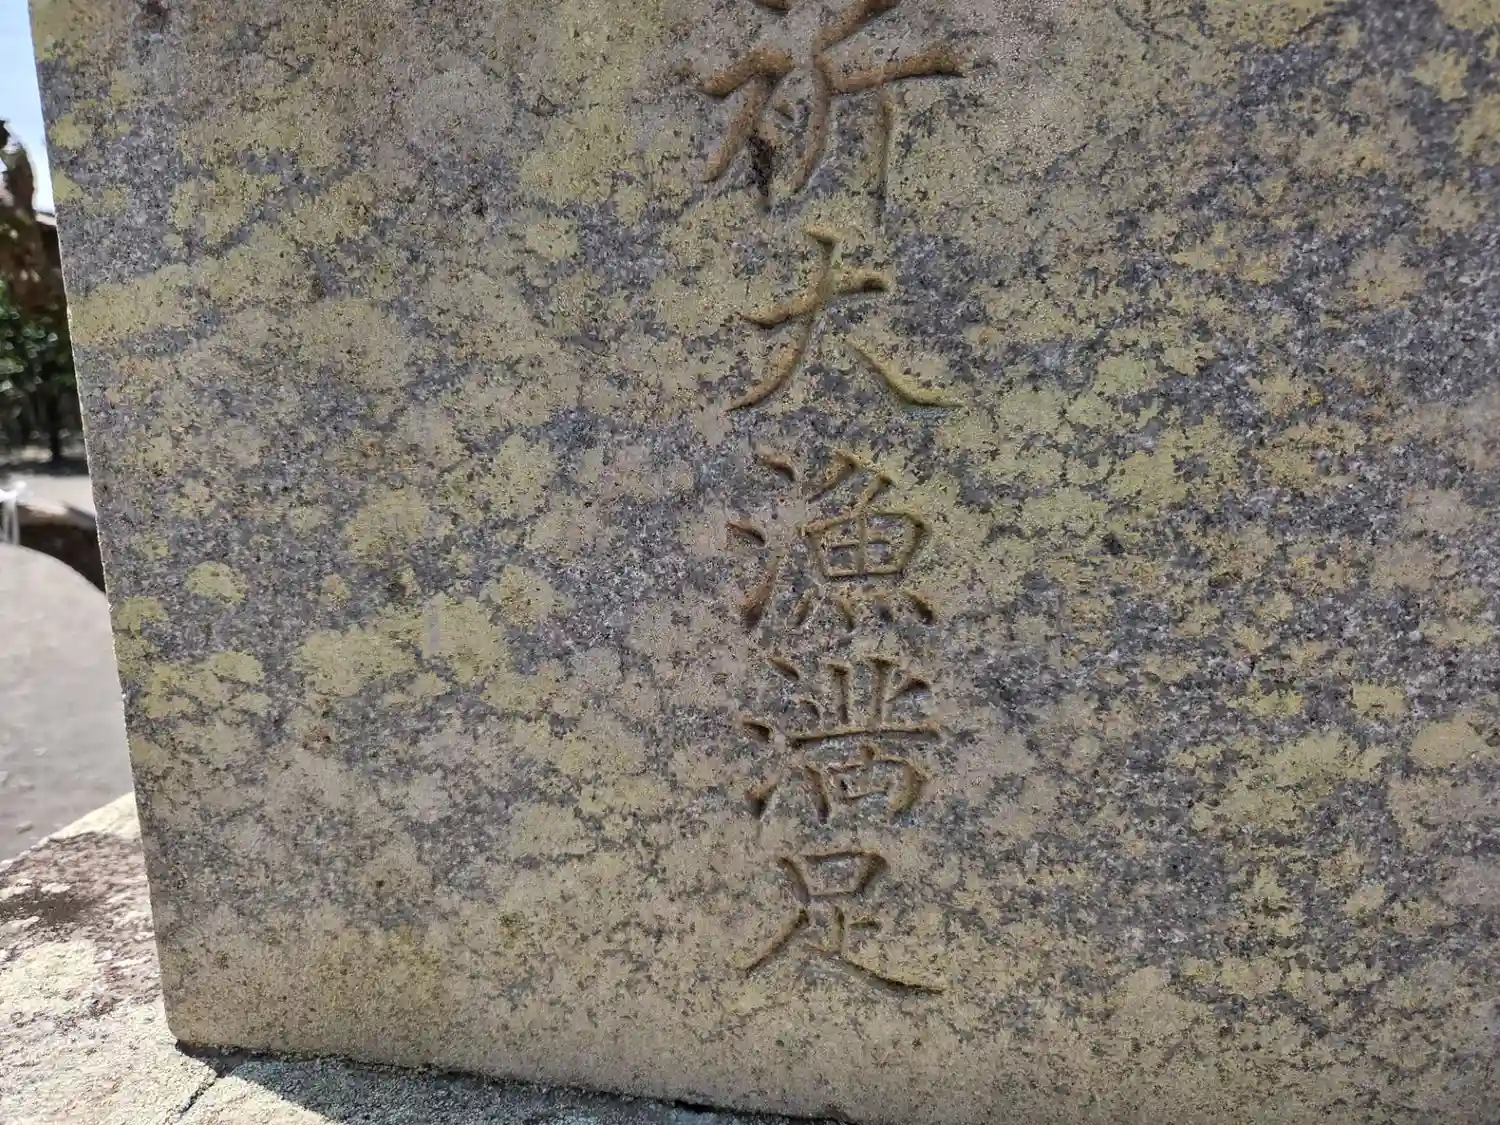 祈大漁満足